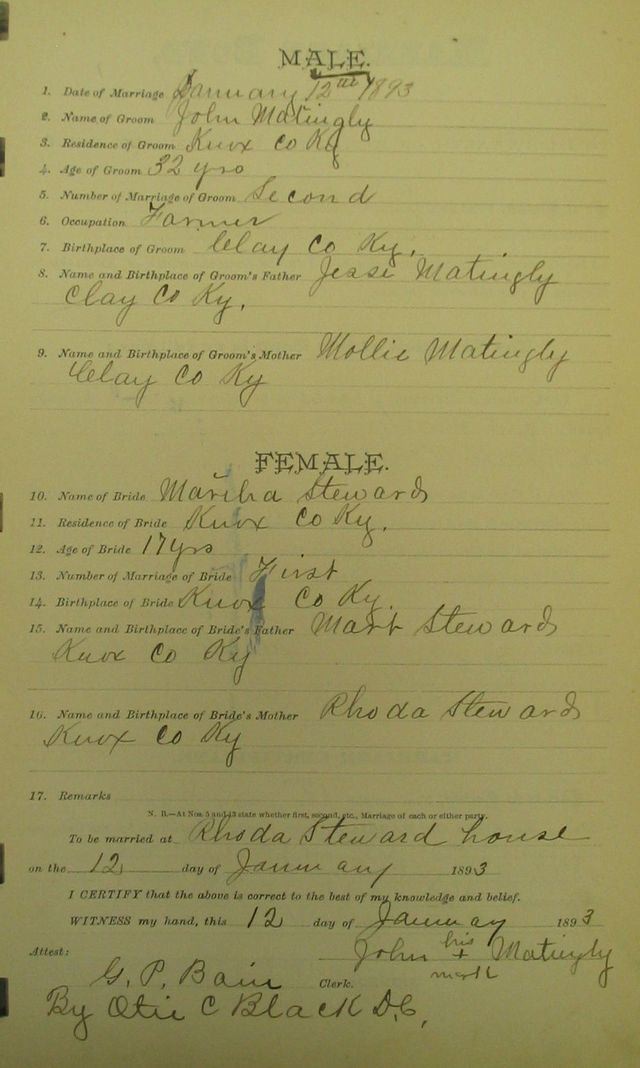 MALE.
1. Date of Marriage January 12th 1893
2. Name of Groom John Matingly
3. Residence of Groom Knox Co Ky
4. Age of Groom 32 yrs
5. Number of Marriage of Groom Second
6. Occupation Farmer
7. Birthplace of Groom Clay Co Ky.
8. Name and Birthplace of Groom's Father Jessi Matingly
Clay Co Ky.
9. Name and Birthplace of Groom's Mother Mollie Matingly
Clay Co Ky
FEMALE.
10. Name of Bride Martha Steward
11. Residence of Bride Knox Co Ky.
12. Age of Bride 17 yrs
13. Number of Marriage of Bride First
14. Birthplace of Bride Knox Co Ky.
15. Name and Birthplace of Bride's Father Mart Steward
Knox Co Ky
16. Name and Birthplace of Bride's Mother Rhoda Steward
Knox Co Ky
17. Remarks
N. B.—At Nos. 5 and 13 state whether first, second, etc., Marriage of each or either party.
To be married at Rhoda Steward house
on the 12 day of January 1893
I CERTIFY that the above is correct to the best of my knowledge and belief.
WITNESS my hand, this 12 day of January 1893
Attest: John his + mark Matingly
G. P. Bain Clerk.
By Otie C Black D.C.